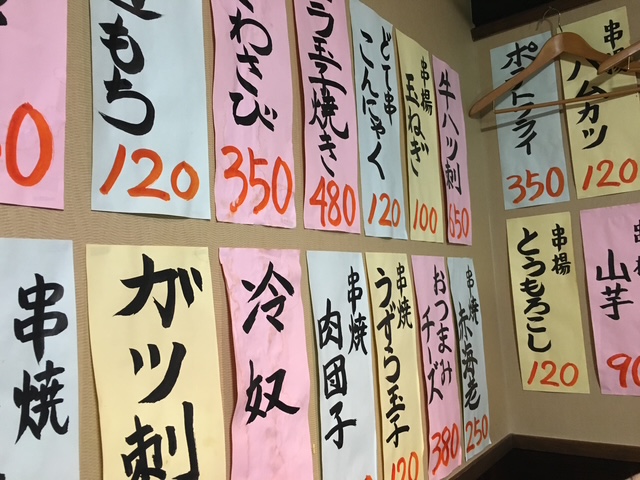 もち
120
わさび
350
う玉子焼き
480
どて串
こんにゃく
120
串揚
玉ねぎ
100
牛ハツ刺
650
ポテトフライ
350
串
ハムカツ
120
串焼
ガツ刺
冷奴
串焼
肉団子
串焼
うずら玉子
120
おつまみ
チーズ
380
串焼
赤海老
250
串揚
とうもろこし
120
山芋
90